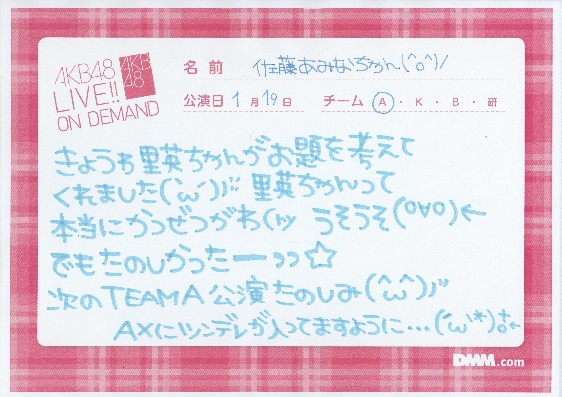 AKB48
LIVE!!
ON DEMAND
AKB
48
名前 佐藤あみなちゃん(^o^)/
公演日 1月19日 チーム A・K・B・研
きょうわ里英ちゃんがお題を考えて
くれました(`ω´)ﾉﾞ 里英ちゃんって
本当にかつぜつがわ(ッ うそうそ(°∀°)←
でもたのしかったーっっ☆
次のTEAMA公演たのしみ(^ω^)ﾉﾞ
AXにツンデレが入ってますように…(´ω`*)
DMM.com